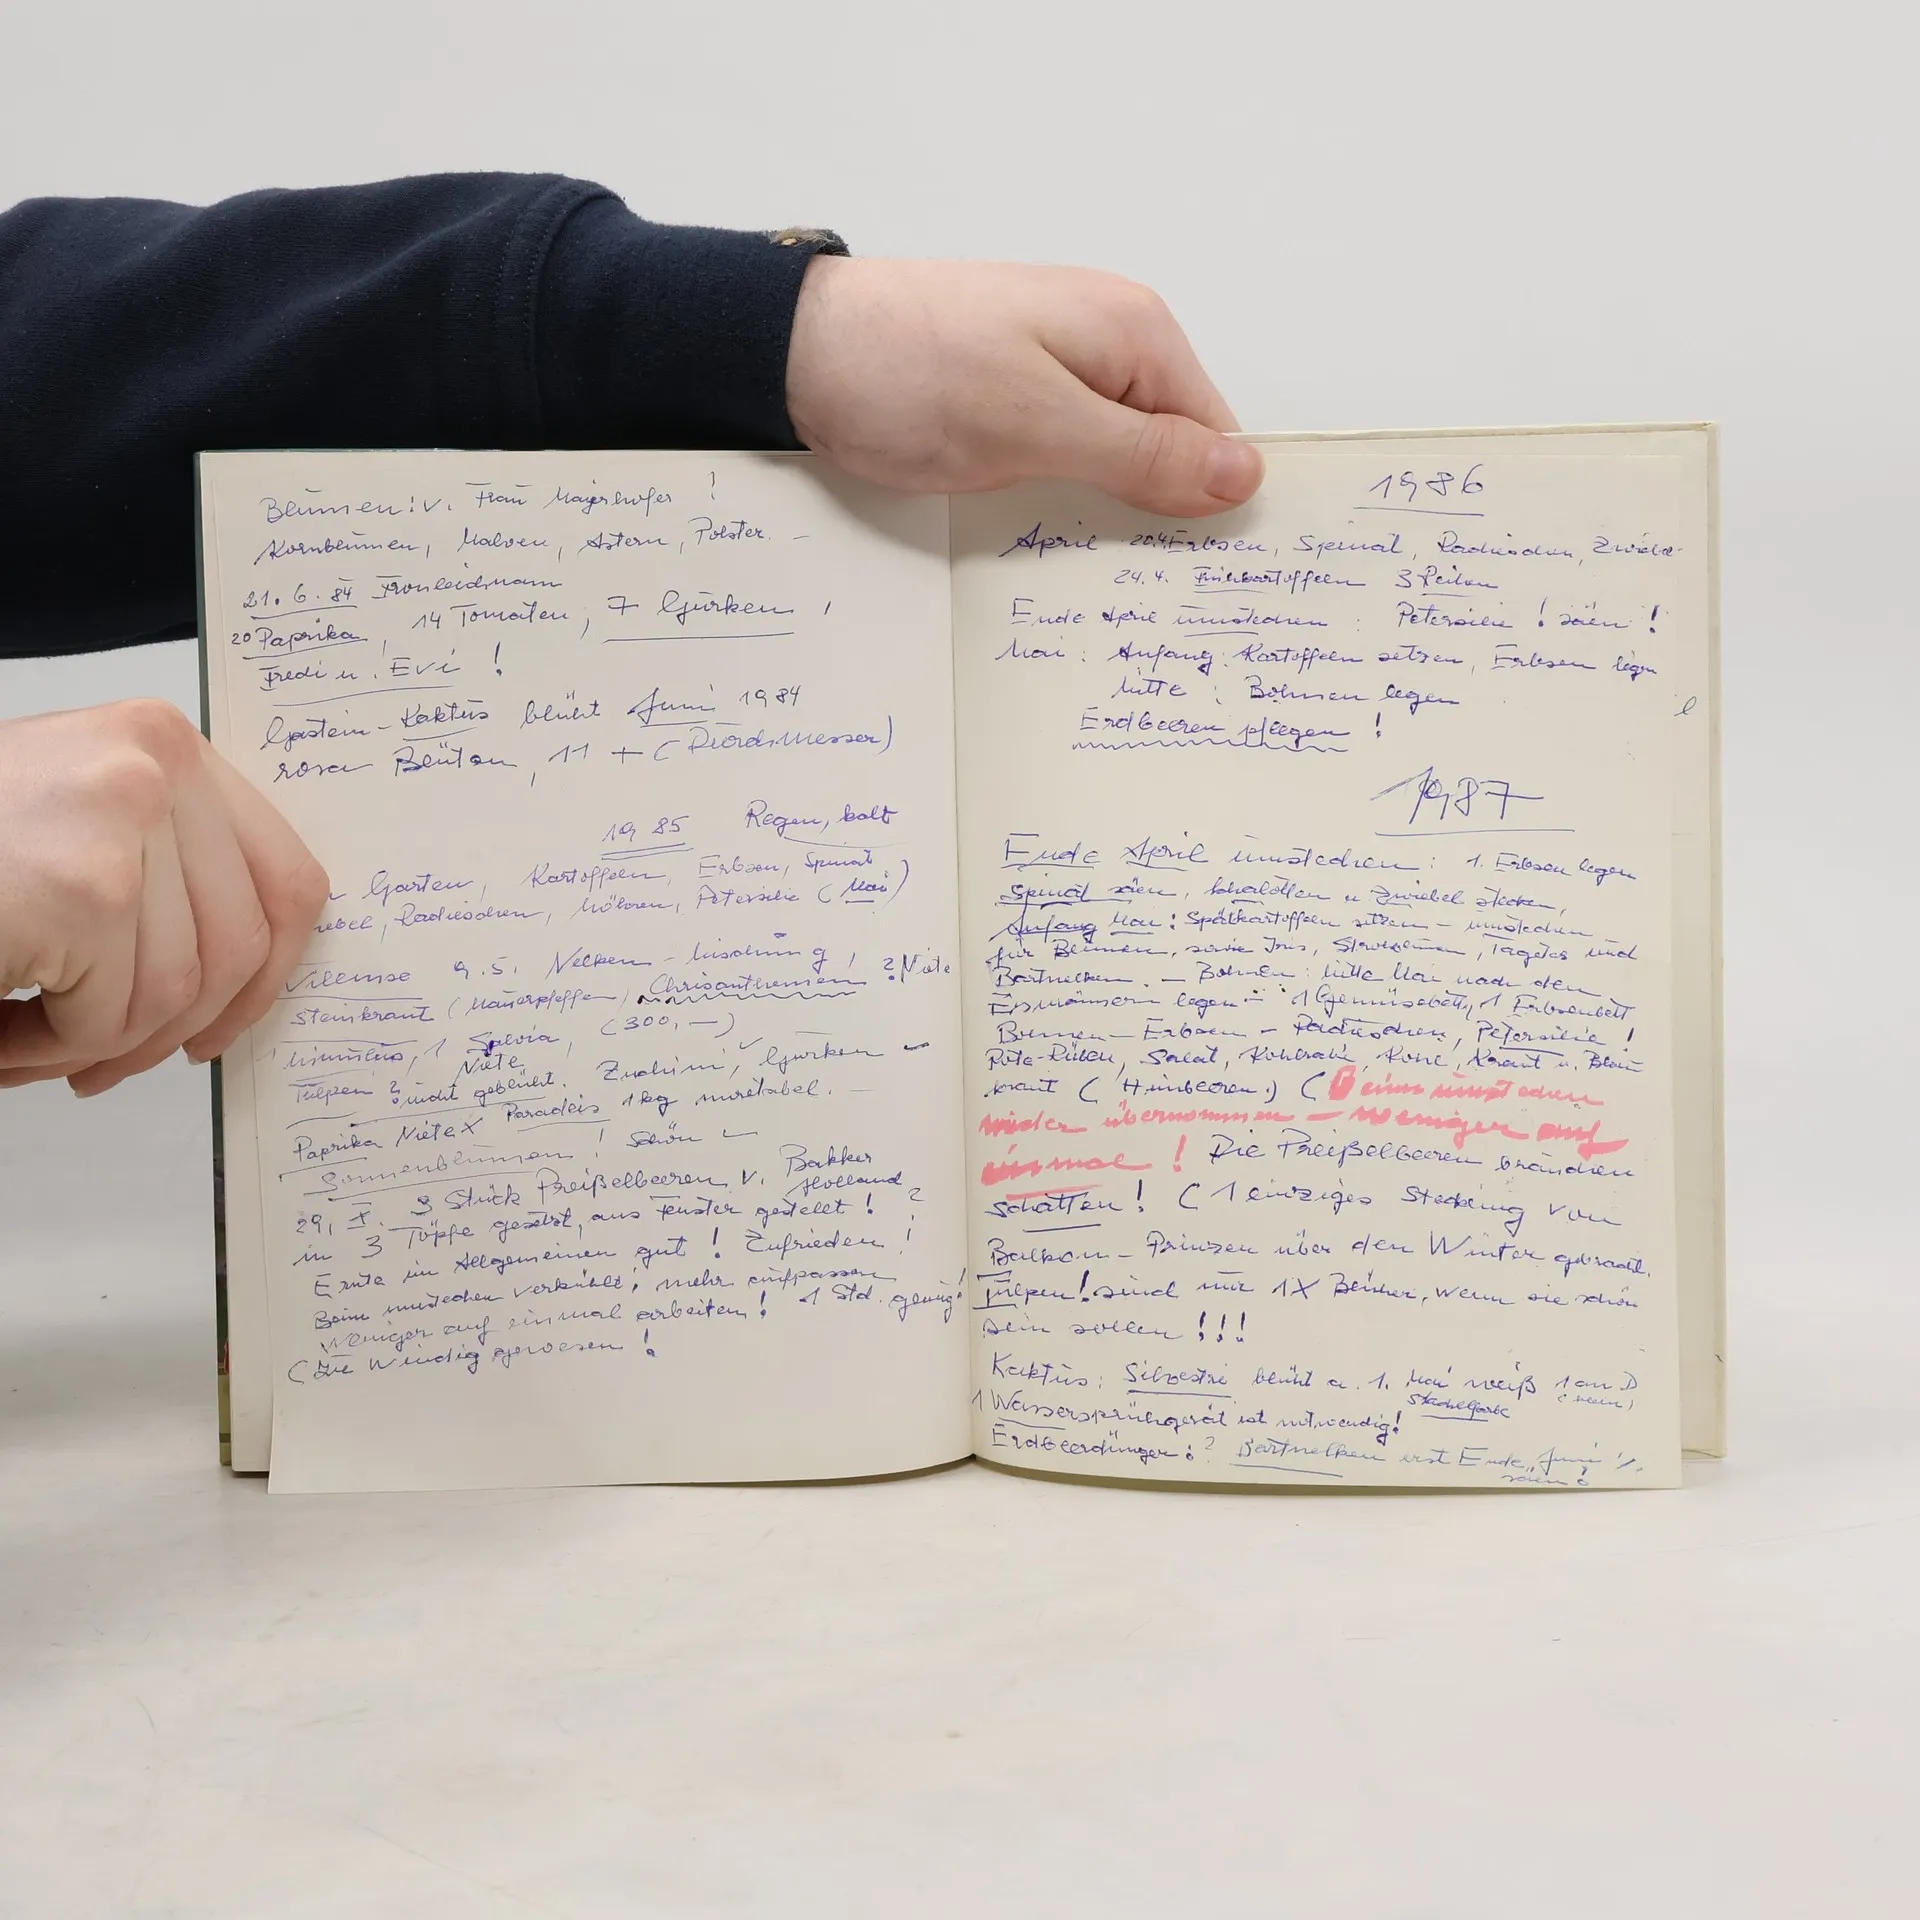 Blumen: v. Frau Mayerhofer !
Kornblumen, Malven, Astern, Polster. –
21. 6. 84 Fronleichnam
20 Paprika, 14 Tomaten, 7 Gurken,
Fredi u. Evi !
Gastein-Kaktus blüht Juni 1984
rosa Blüten, 11 + (
1985 Regen, kalt
Garten, Kartoffeln, Erbsen, Spinat
Radieschen, Möhren, Petersilie (Mai)
9.5. Nelken-Mischung, ? Niete
Steinkraut (Mauerpfeffer, Chrisanthemen
1 Mimulus, 1 Salvia, (300,—)
Niete
Tulpen ? nicht geblüht. Zuchini, Gurken
Paprika Niete X Paradeis 1 kg
Sonnenblumen ! schön
29, I. 3 Stück Preißelbeeren v. Bakker Holland
in 3 Töpfe gesetzt, ans Fenster gestellt ! ?
Ernte im Allgemeinen gut ! Zufrieden !
Beim umstechen verkühlt, mehr aufpassen
weniger auf einmal arbeiten ! 1 Std. genug !
(Zu windig gewesen !
1986
April 20.4 Erbsen, Spinat, Radieschen, Zwiebel
24.4. Frühkartoffeln 3 Reihen
Ende April umstechen : Petersilie ! säen !
Mai : Anfang : Kartoffeln setzen, Erbsen legen
Mitte : Bohnen legen
Erdbeeren pflegen !
1987
Ende April umstechen : 1. Erbsen legen
Spinat säen, Schalotten u Zwiebel stecken,
Anfang Mai : Spätkartoffeln setzen – umstechen
für Blumen, sowie Iris, Strohblumen, Tagetes und
Bartnelken. – Bohnen : Mitte Mai nach den
Eismännern legen – 1 Gemüsebett, 1 Erbsenbett
Bohnen – Erbsen – Radieschen, Petersilie !
Rote-Rüben, Salat, Kohlrabi, Kohl, Kraut u. Blau-
kraut (Himbeeren.) (Beim umstechen
wieder übernommen – weniger auf
einmal ! Die Preißelbeeren brauchen
schatten ! (1 einziges Steckling von
Balkon-Prinzen über den Winter gebracht.
Tulpen ! sind nur 1X Blüher, wenn sie schön
sein sollen !!!
Kaktus : Silvestri blüht a. 1. Mai weiß
1 Wassersprühgerät ist notwendig !
Erdbeerdünger : ? Bartnelken erst Ende Juni
säen